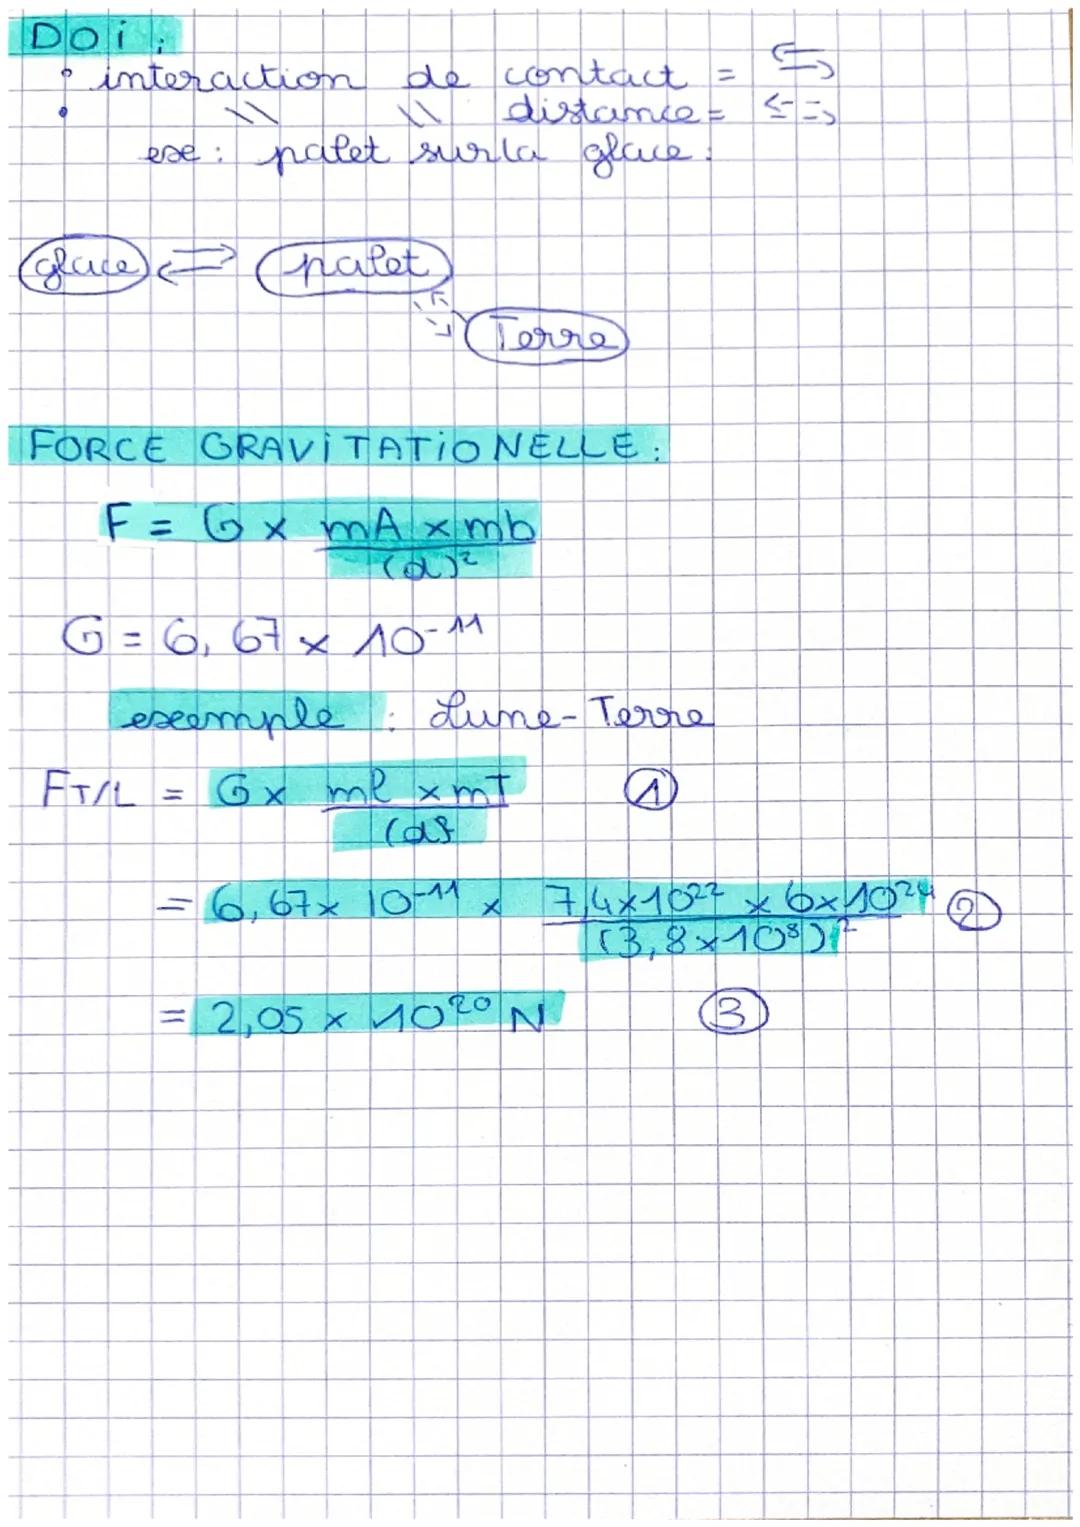 DOi :
• interaction de contact = ⇆
• \\ \\ distance = ⇠⇢
exe : palet sur la glace :
glace ⇄ palet
Terre
FORCE GRAViTATiONELLE :
F = G × mA × mb
(d)²
G = 6,67 × 10⁻¹¹
exemple : Lune-Terre
FT/L = G × ml × mT ①
(d)²
= 6,67 × 10⁻¹¹ × 7,4×10²² × 6×10²⁴ ②
(3,8×10⁸)²
= 2,05 × 10²⁰ N ③